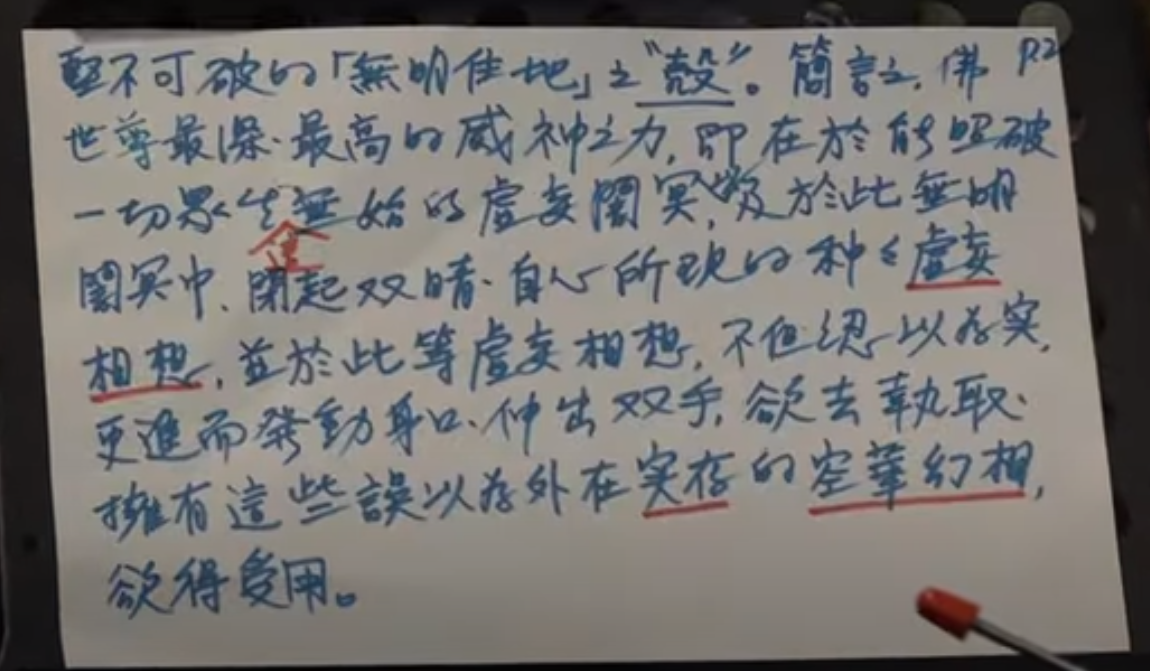 堅不可破的「無明住地」之“殼”。簡言之,佛 P.2
世尊最深、最高的威神之力,即在於能照破
一切眾生無始的虛妄闇冥,以及於此無明
闇冥中、閉起双睛、自心所現的种々虛妄
相想,並於此等虛妄相想,不但認以為实,
更進而發動身口、伸出双手,欲去執取、
擁有這些誤以為外在实存的空華幻相,
欲得受用。